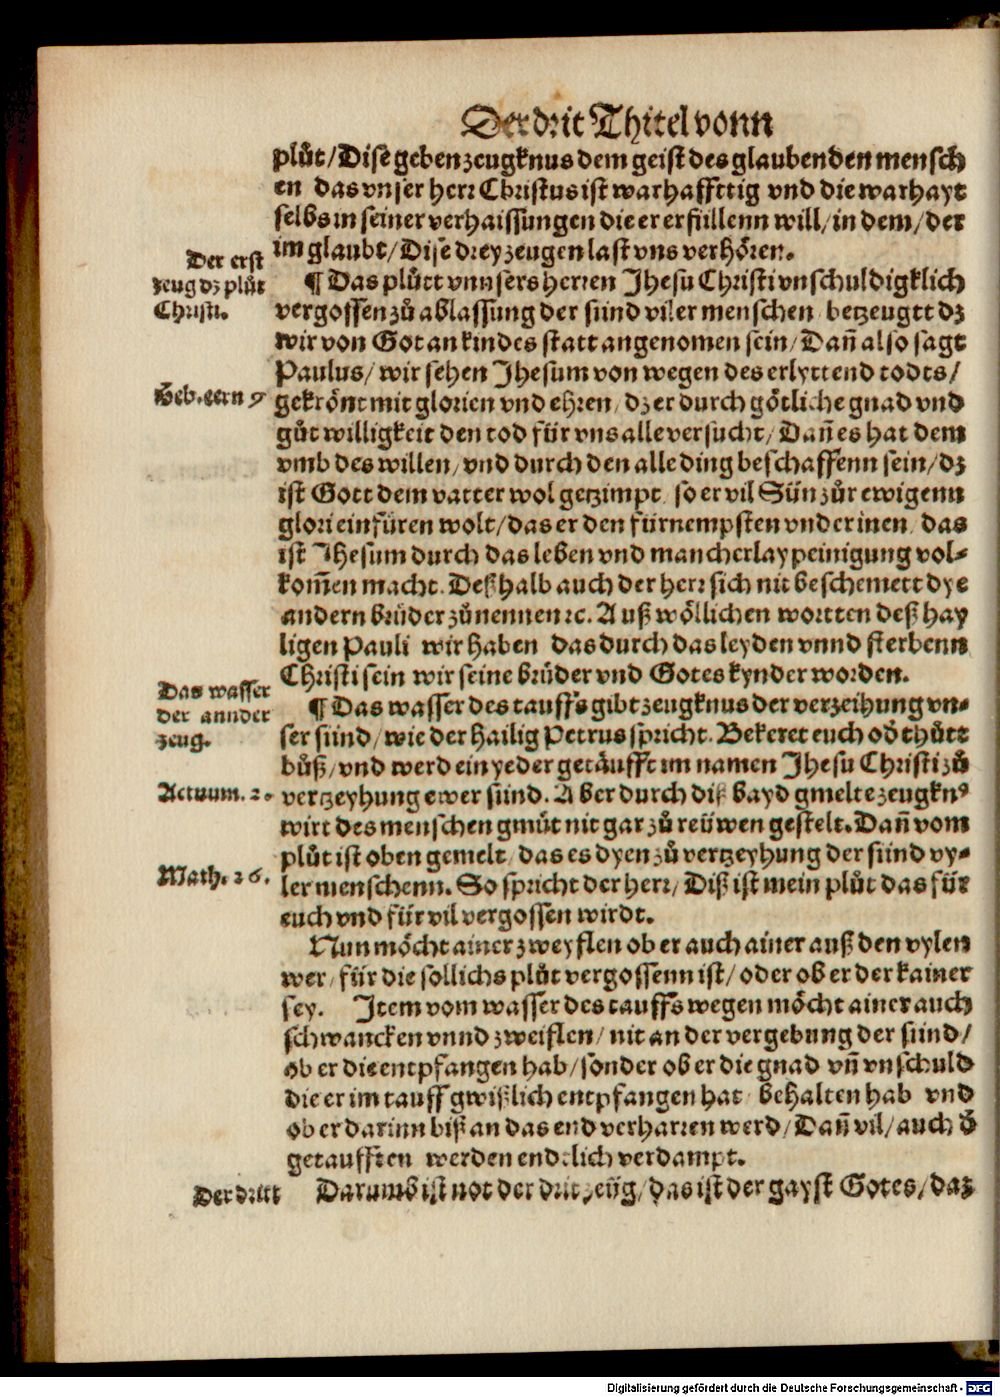 Der drit Thitel vonn
plůt/Dise geben zeugknus dem geist des glaubenden mensch
en das vnser herr Christus ist warhaffttig vnd die warhayt
selbs in seiner verhaissungen die er erfüllenn will/in dem/der
im glaubt/Dise drey zeugen last vns verhören.
Der erst
zeug dz plůt
Christi.
¶ Das plůtt vnnsers herren Jhesu Christi vnschuldigklich
vergossen zů ablassung der sünd viler menschen betzeugtt dz
wir von Got an kindes statt angenomen sein/Dañ also sagt
Paulus/wir sehen Jhesum von wegen des erlyttend todts/
Heb.eern 9
gekrönt mit glorien vnd ehren/dz er durch götliche gnad vnd
gůt willigkeit den tod für vns alle versucht/Dañ es hat dem
vmb des willen/vnd durch den alle ding beschaffenn sein/dz
ist Gott dem vatter wol getzimpt so er vil Sün zůr ewigenn
glori einfüren wolt/das er den fürnempsten vnder inen das
ist Jhesum durch das leben vnd mancherlay peinigung vol-
kom̃en macht. Deßhalb auch der herr sich nit beschemett dye
andern brüder zů nennen ꝛc. Auß wöllichen wortten deß hay
ligen Pauli wir haben das durch das leyden vnnd sterbenn
Christi sein wir seine brüder vnd Gotes kynder worden.
Das wasser
der annder
zeug.
¶ Das wasser des tauffs gibt zeugknus der verzeihung vn-
ser sünd/wie der hailig Petrus spricht. Bekeret euch od̓ thůtt
bůß/vnd werd ein yeder getäufft im namen Jhesu Christi zů
Actuum. 2.
vertzeyhung ewer sünd. Aber durch diß bayd gmelte zeugknꝰ
wirt des menschen gmůt nit gar zů reüwen gestelt. Dañ vom
plůt ist oben gemelt das es dyen zů vertzeyhung der sünd vy-
Math. 26.
ler menschenn. So spricht der herr/Diß ist mein plůt das für
euch vnd für vil vergossen wirdt.
Nun möcht ainer zweyflen ob er auch ainer auß den vylen
wer/für die sollichs plůt vergossenn ist/oder ob er der kainer
sey. Item vom wasser des tauffs wegen möcht ainer auch
schwancken vnnd zweiflen/nit an der vergebung der sünd/
ob er die entpfangen hab/sonder ob er die gnad vñ vnschuld
die er im tauff gwißlich entpfangen hat behalten hab vnd
ob er darinn biß an das end verharren werd/Dañ vil/auch d̓
getaufften werden endtlich verdampt.
Der dritt
Darumb ist not der drit zeüg/das ist der gayst Gotes/daz
Digitalisierung gefördert durch die Deutsche Forschungsgemeinschaft - DFG